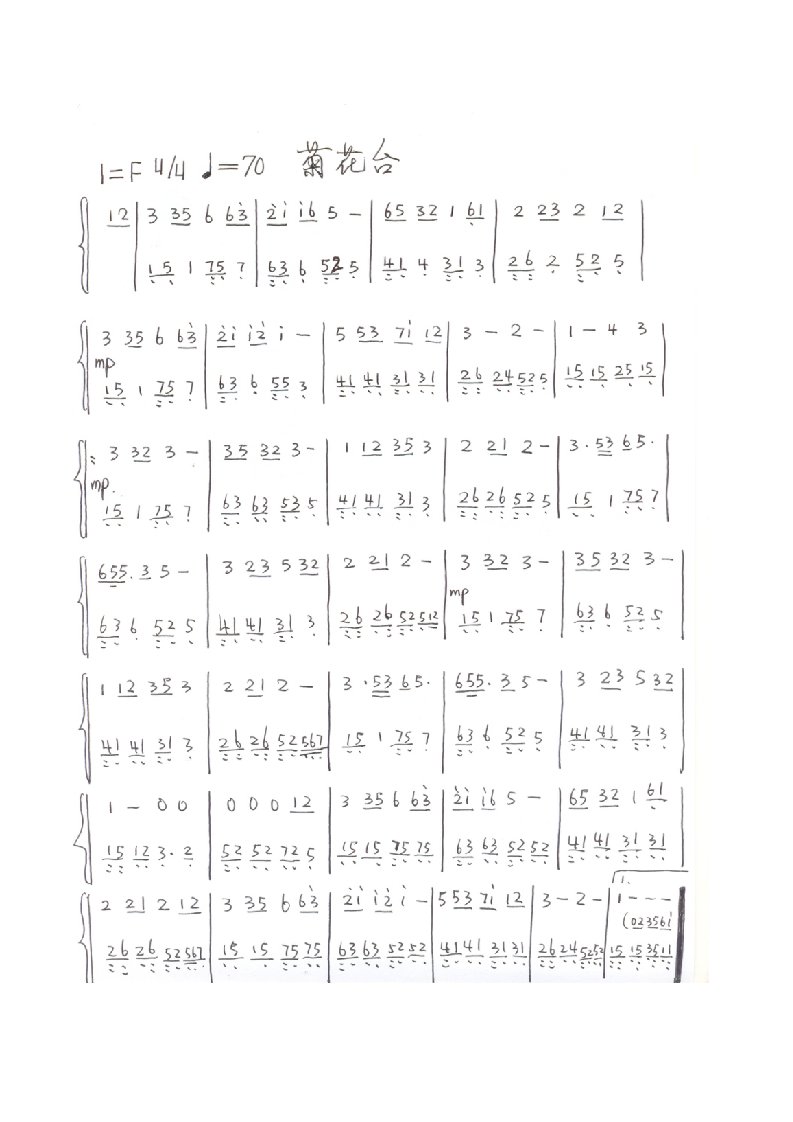 1=F 4/4 ♩=70 菊花台
12 | 3 35 6 63̇ | 2̇1̇ 1̇6 5 - | 65 32 1 61 | 2 23 2 12 |
15 1 75 7 | 63 6 52 5 | 41 4 31 3 | 26 2 52 5 |
3 35 6 63̇ | 2̇1̇ 1̇2̇ 1̇ - | 5 53 71̇ 12 | 3 - 2 - | 1 - 4 3 |
mp
15 1 75 7 | 63 6 55 3 | 41 41 31 31 | 26 24 52 5 | 15 15 25 15 |
: 3 32 3 - | 35 32 3 - | 1 12 35 3 | 2 21 2 - | 3 · 53 65 · |
mp.
15 1 75 7 | 63 63 53 5 | 41 41 31 3 | 26 26 52 5 | 15 1 75 7 |
655 · 3 5 - | 3 23 5 32 | 2 21 2 - | 3 32 3 - | 35 32 3 - |
mp
63 6 52 5 | 41 41 31 3 | 26 26 52 512 | 15 1 75 7 | 63 6 52 5 |
1 12 35 3 | 2 21 2 - | 3 · 53 65 · | 655 · 3 5 - | 3 23 5 32 |
41 41 31 3 | 26 26 52 567 | 15 1 75 7 | 63 6 52 5 | 41 41 31 3 |
1 - 0 0 | 0 0 0 12 | 3 35 6 63̇ | 2̇1̇ 1̇6 5 - | 65 32 1 61 |
15 12 3 · 2 | 52 52 72 5 | 15 15 75 75 | 63 63 52 52 | 41 41 31 31 |
1.
2 21 2 12 | 3 35 6 63̇ | 2̇1̇ 1̇2̇ 1̇ - | 5 53 71̇ 12 | 3 - 2 - | 1 - - - |
(023561̇
26 26 52 567 | 15 15 75 75 | 63 63 52 52 | 41 41 31 31 | 26 24 52 52 | 15 15 35 11 |